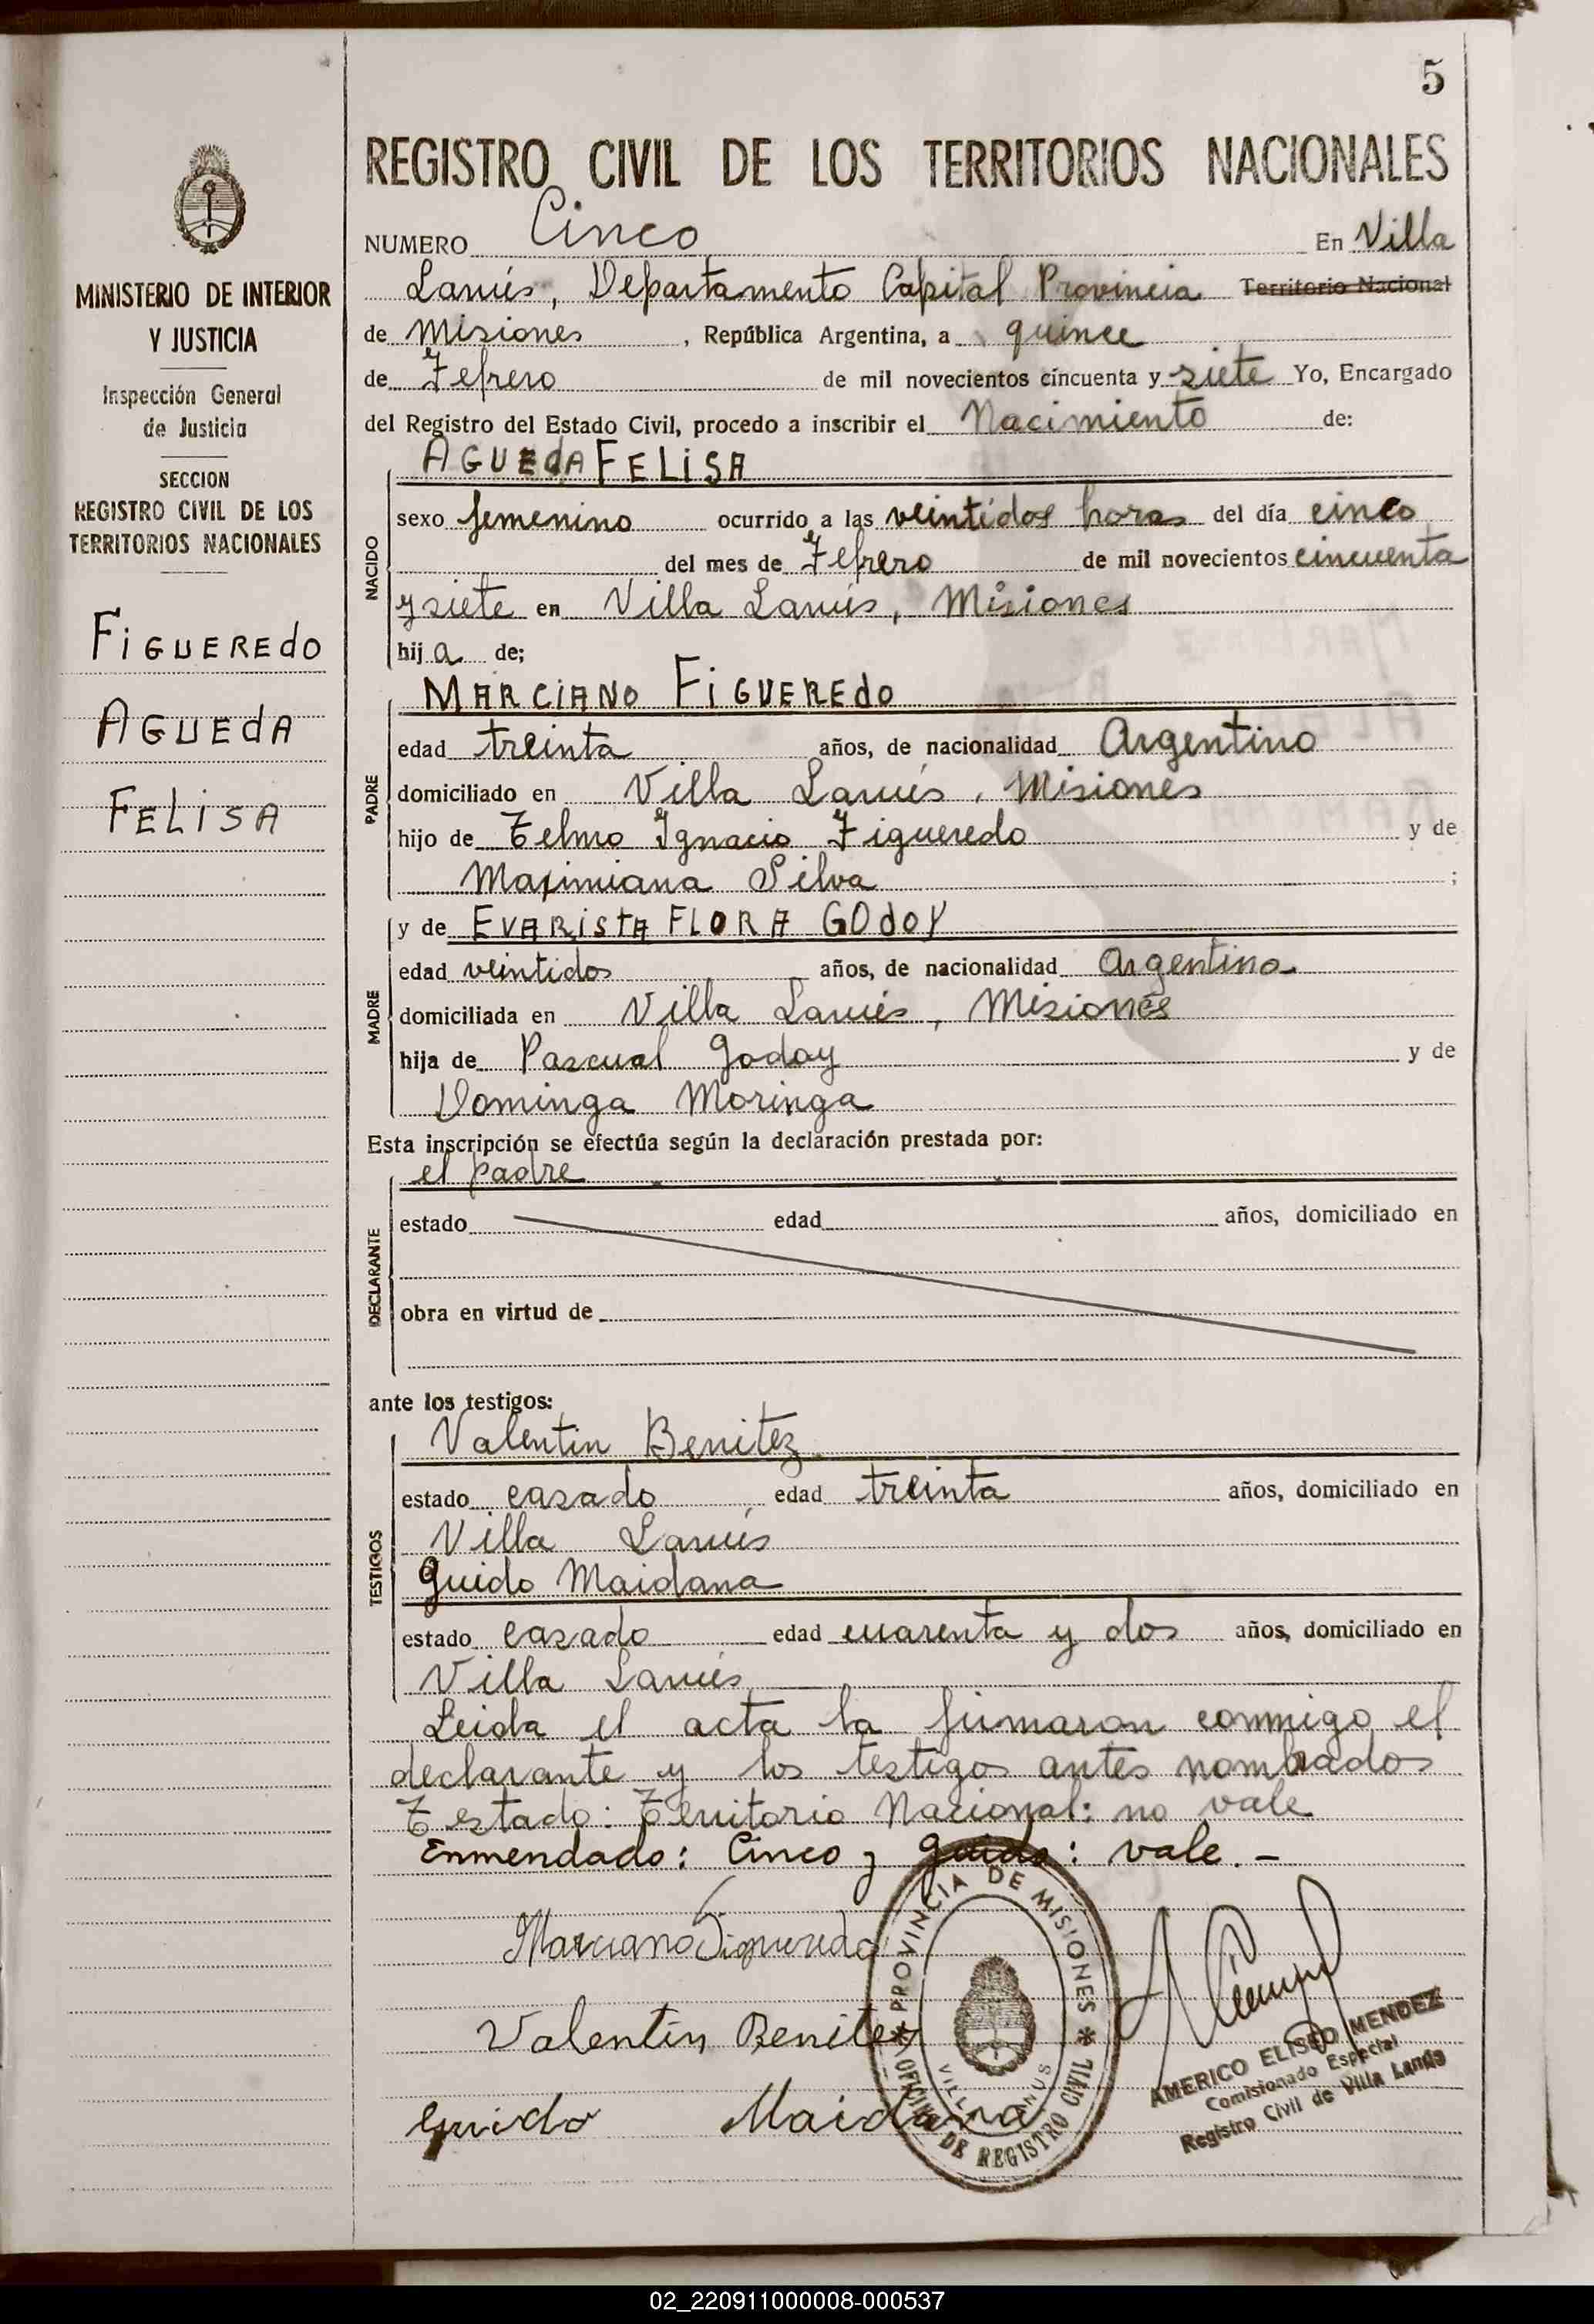 5
REGISTRO CIVIL DE LOS TERRITORIOS NACIONALES
NUMERO Cinco En Villa
Lanús, Departamento Capital Provincia Territorio Nacional
de Misiones, República Argentina, a quince
de Febrero de mil novecientos cincuenta y siete Yo, Encargado
del Registro del Estado Civil, procedo a inscribir el Nacimiento de:
AGUEdA FELISA
NACIDO
sexo femenino ocurrido a las veintidos horas del día cinco
del mes de Febrero de mil novecientos cincuenta
y siete en Villa Lanús, Misiones
hija de;
MARCIANO FIGUEREdO
PADRE
edad treinta años, de nacionalidad Argentino
domiciliado en Villa Lanús, Misiones
hijo de Telmo Ignacio Figueredo y de
Maximiana Silva;
y de EVARISTA FLORA GOdOY
MADRE
edad veintidos años, de nacionalidad Argentina
domiciliada en Villa Lanús, Misiones
hija de Pascual Godoy y de
Dominga Moringa
Esta inscripción se efectúa según la declaración prestada por:
el padre
DECLARANTE
estado edad años, domiciliado en
obra en virtud de
ante los testigos:
Valentin Benitez
TESTIGOS
estado casado edad treinta años, domiciliado en
Villa Lanús
Guido Maidana
estado casado edad cuarenta y dos años, domiciliado en
Villa Lanús
Leida el acta la firmaron conmigo el
declarante y los testigos antes nombrados
Testado: Territorio Nacional: no vale
Enmendado: Cinco y Guido: vale.-
Marciano Figueredo
Valentin Benitez
Guido Maidana
PROVINCIA DE MISIONES
OFICINA DE REGISTRO CIVIL
VILLA LANUS
AMERICO ELISEO MENDEZ
Comisionado Especial
Registro Civil de Villa Lanús
MINISTERIO DE INTERIOR
Y JUSTICIA
Inspección General
de Justicia
SECCION
REGISTRO CIVIL DE LOS
TERRITORIOS NACIONALES
FIGUEREdO
AGUEdA
FELISA
02_220911000008-000537